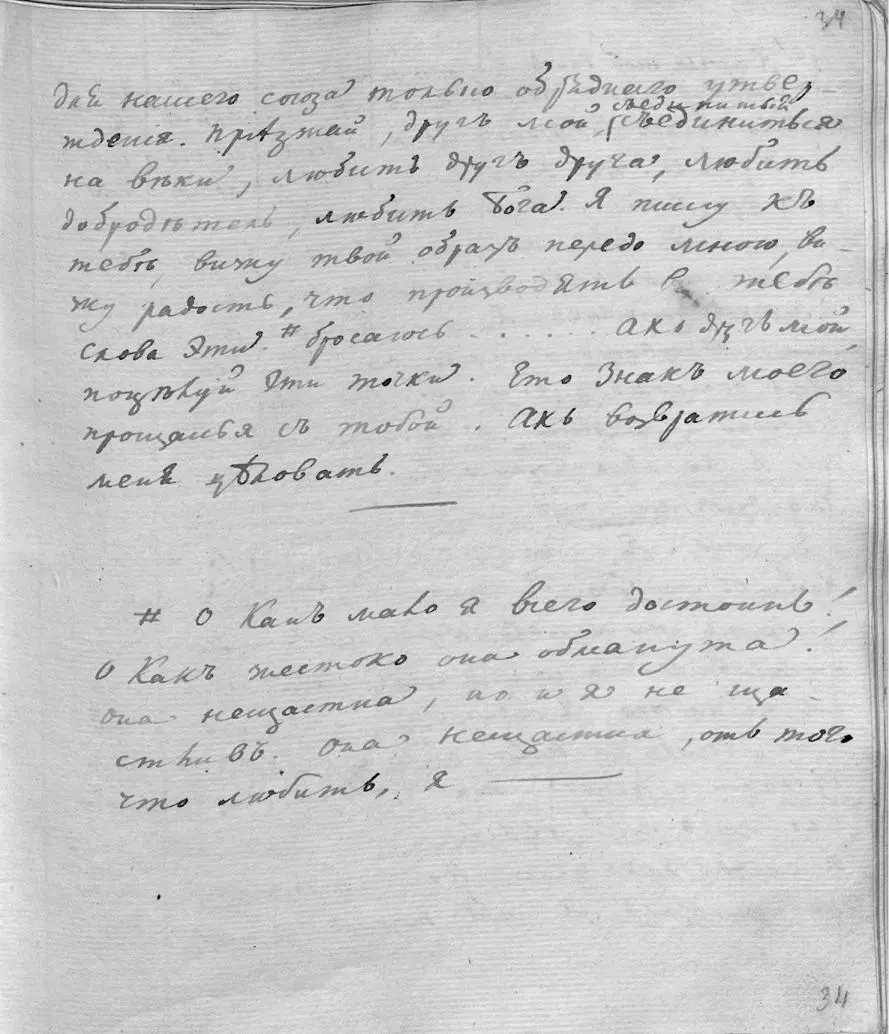 34
для нашего союза только обряднаго утвер-
жденія. Пріѣзжай, другъ мой, съединиться
на вѣки, любить другъ друга, любить
добродѣтель, любить Бога. Я пишу къ
тебѣ, вижу твой образъ передо мною, ви-
жу радость, что производятъ въ тебѣ
слова эти. # бросаюсь . . . . . . Ахъ другъ мой,
поцѣлуй эти точки. Ето знакъ моего
прощанья съ тобой. Ахъ возвратись
меня цѣловать.
# О Какъ мало я всего достоинъ!
О Какъ жестоко она обманута!
она нещастна, но и я не ща-
стливъ. Она нещастна, отъ того
что любитъ, я
34